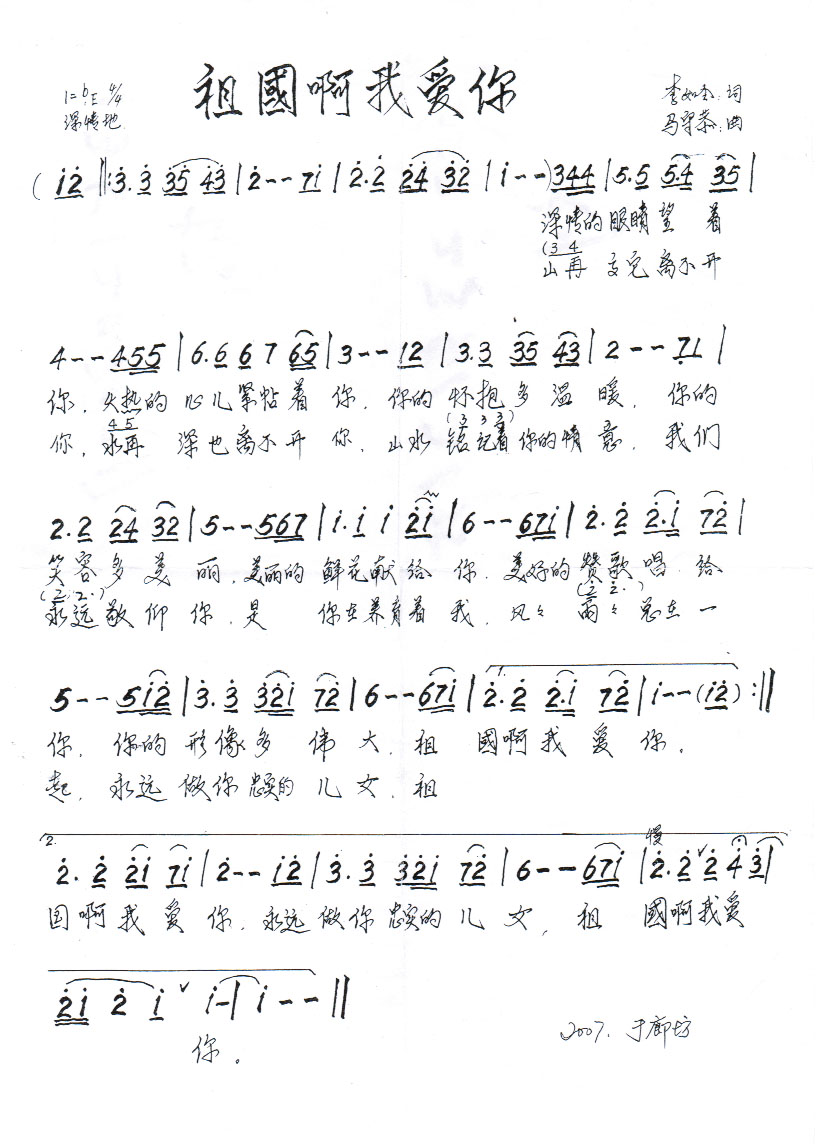 祖國啊我爱你
1=bE 4/4
深情地
词
马守恭:曲
(i̇2̇ ‖:3̇.3̇ 3̇5̇ 4̇3̇|2̇--7i̇|2̇.2̇ 2̇4̇ 3̇2̇|i̇--)344|5.5 5.4 35|
深情的眼睛望着
(34
山再高它离不开
4--455|6.6 6 7 65|3--12|3.3 35 43|2--7̣1|
你,火热的心儿紧帖着你,你的怀抱多温暖,你的
45 (333)
你,水再深也离不开你,山水铭记着你的情意,我们
2.2 24 32|5--567|i̇.i̇ i̇ 2̇i̇|6--67i̇|2̇.2̇ 2̇.i̇ 72̇|
笑容多美丽,美丽的鲜花献给你,美好的赞歌唱给
(2.2.) (2̇2̇.)
永远敬仰你,是你在养育着我,风々雨々总在一
5--5i̇2̇|3̇.3̇ 3̇2̇i̇ 72̇|6--67i̇|1.2̇.2̇ 2̇.i̇ 72̇|i̇--(i̇2̇):‖
你,你的形像多伟大,祖國啊我爱你。
起,永远做你忠实的儿女,祖
2. 慢
2̇.2̇ 2̇i̇ 7i̇|2̇--i̇2̇|3̇.3̇ 3̇2̇i̇ 72̇|6--67i̇|2̇.2̇ˇ2̇ 4̇ 3̇|
国啊我爱你,永远做你忠实的儿女,祖國啊我爱
2̇i̇ 2̇ i̇ˇi̇-|i̇--‖
你。
2007.于廊坊